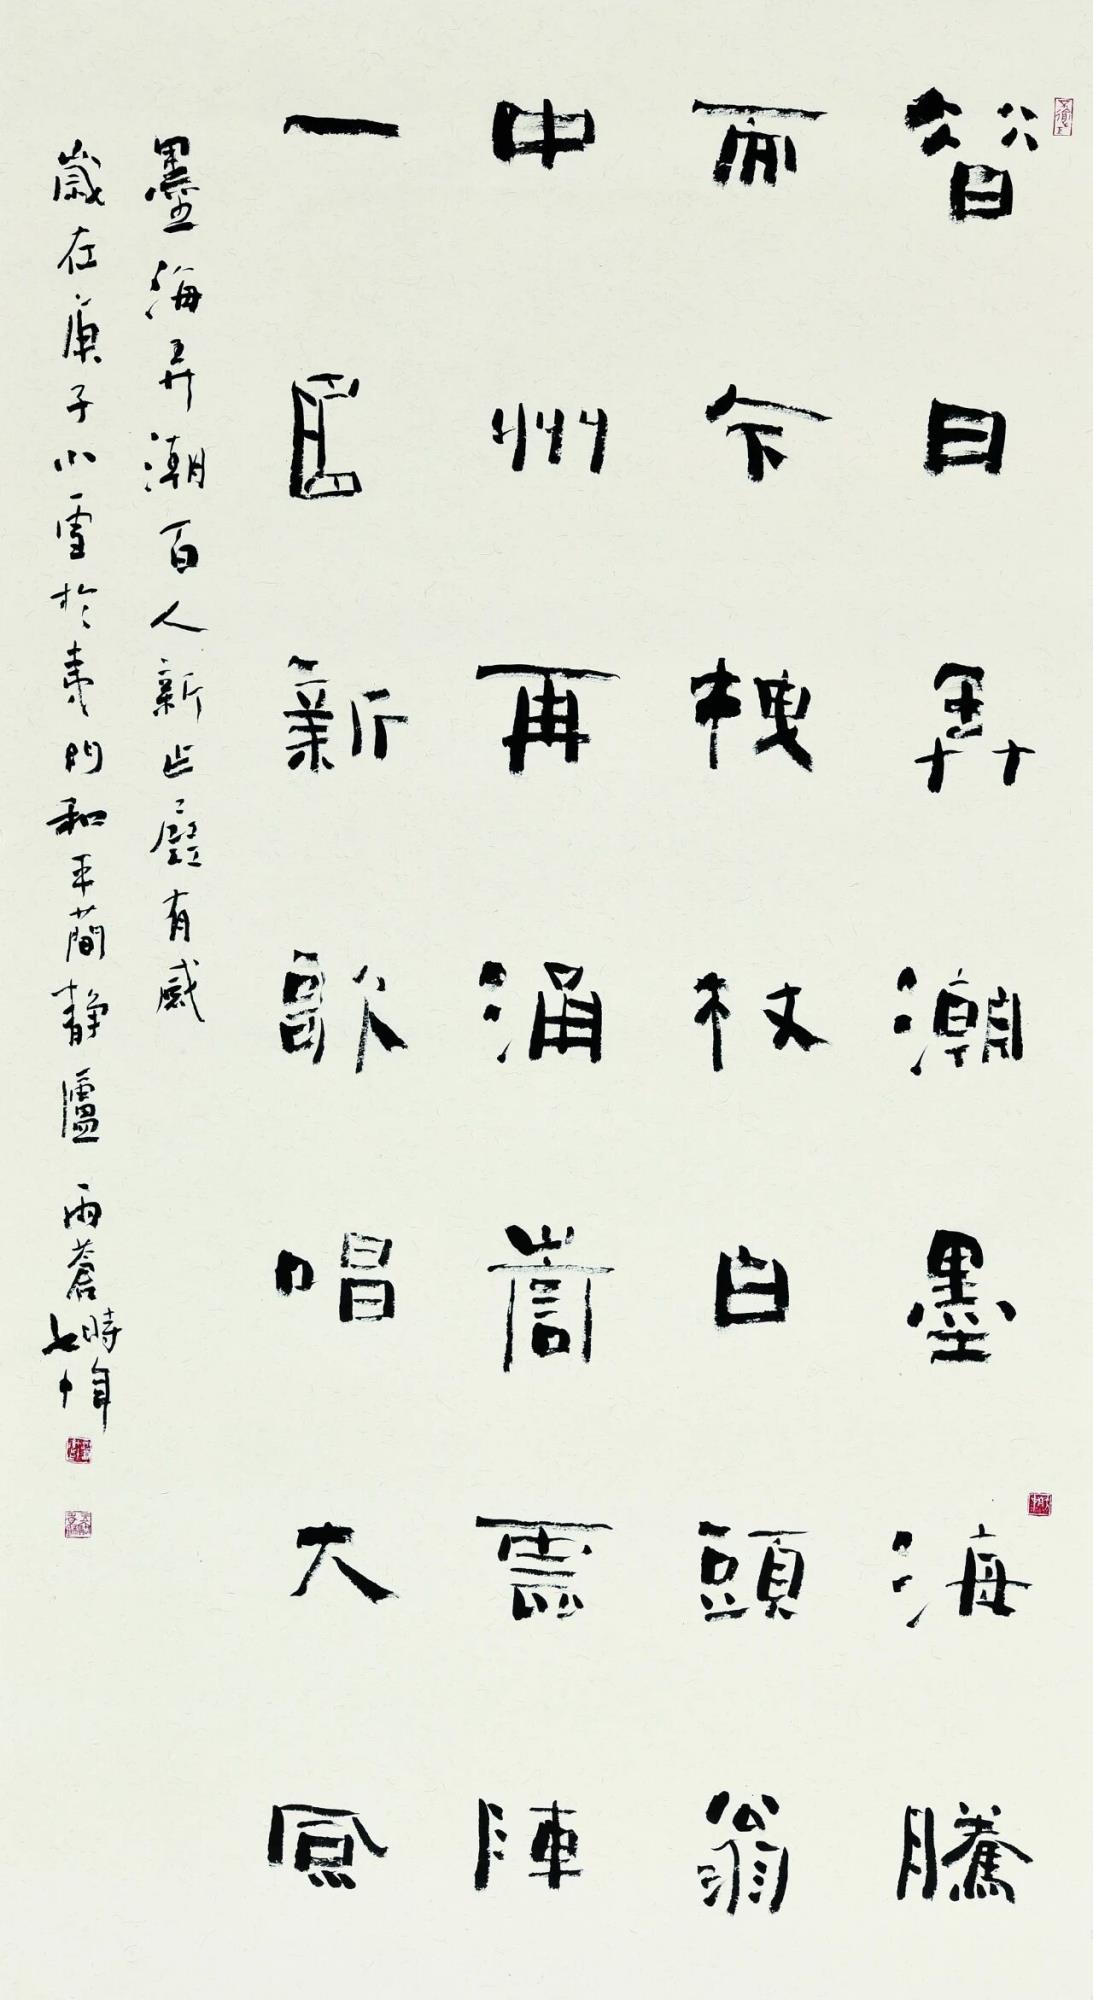 昔日弄潮墨海騰
而今拽杖白頭翁
中州再涌嵩雲陣
一新歌唱大風
墨海弄潮百人新作展有感
歲在庚子小雪於夷門和平蕳静廬 雨蒼時年七十